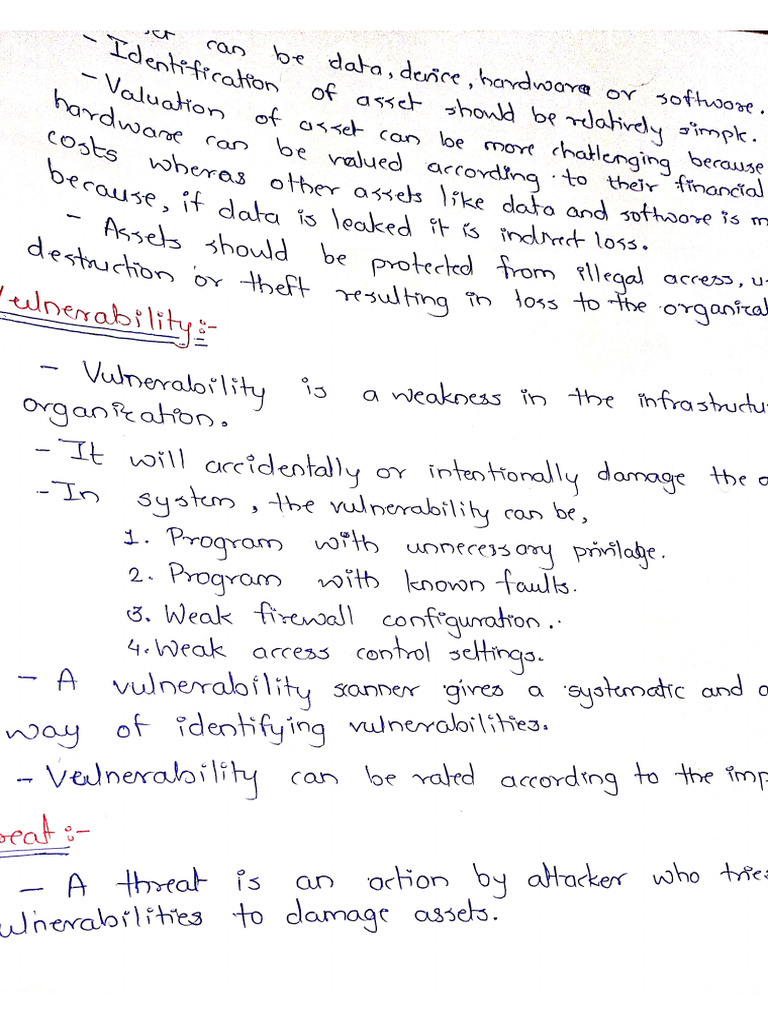 can be data, device, hardware or software.
- Identification of asset should be relatively simple.
- Valuation of asset can be more challenging because
hardware can be valued according to their financial
costs wheras other assets like data and software is m
because, if data is leaked it is indirect loss.
- Assets should be protected from illegal access, u
destruction or theft resulting in loss to the organizat
Vulnerability:-
- Vulnerability is a weakness in the infrastructu
organization.
- It will accidentally or intentionally damage the a
- In system, the vulnerability can be,
1. Program with unnecessary privilage.
2. Program with known faults.
3. Weak firewall configuration.
4. Weak access control settings.
- A vulnerability scanner gives a systematic and a
way of identifying vulnerabilities.
- Vulnerability can be rated according to the imp
reat:-
- A threat is an action by attacker who tries
ulnerabilities to damage assets.